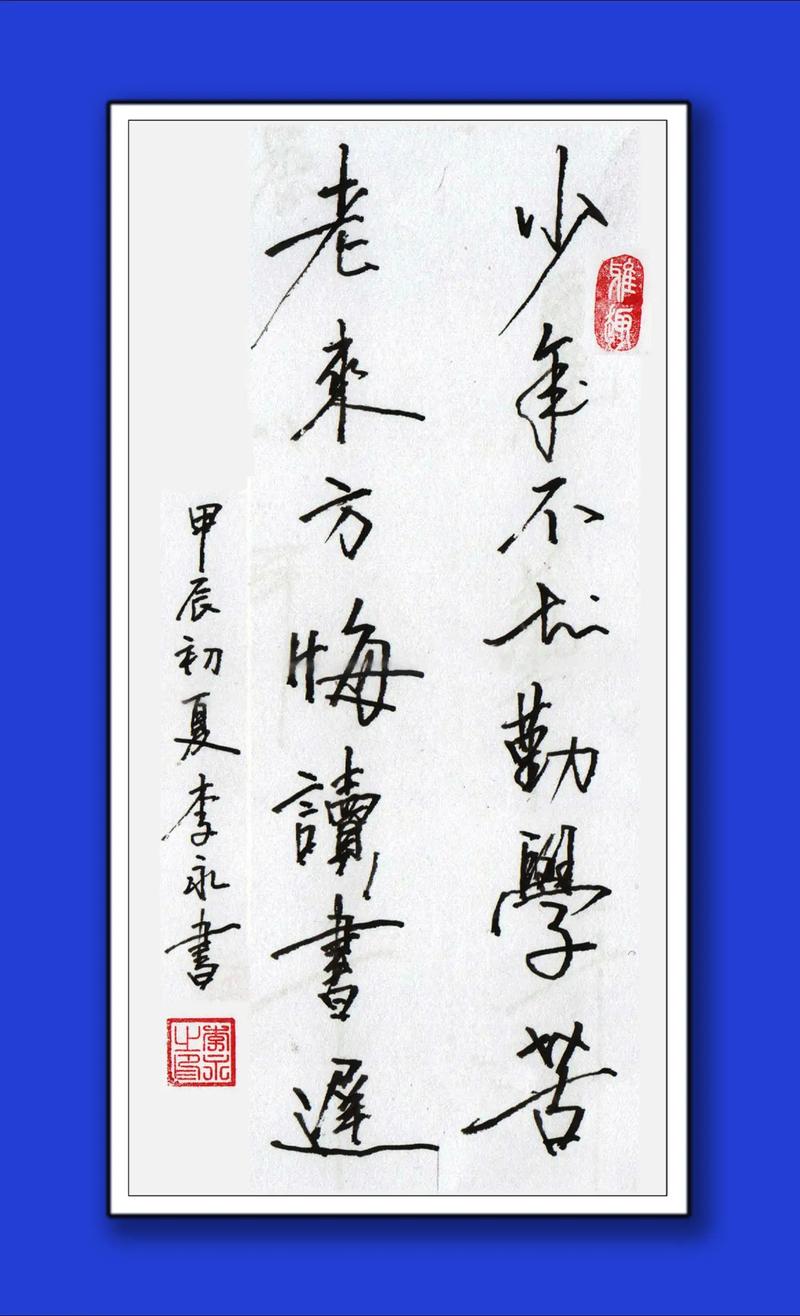 少年不知勤學苦
老來方悔讀書遲
甲辰初夏李永書
李永之印